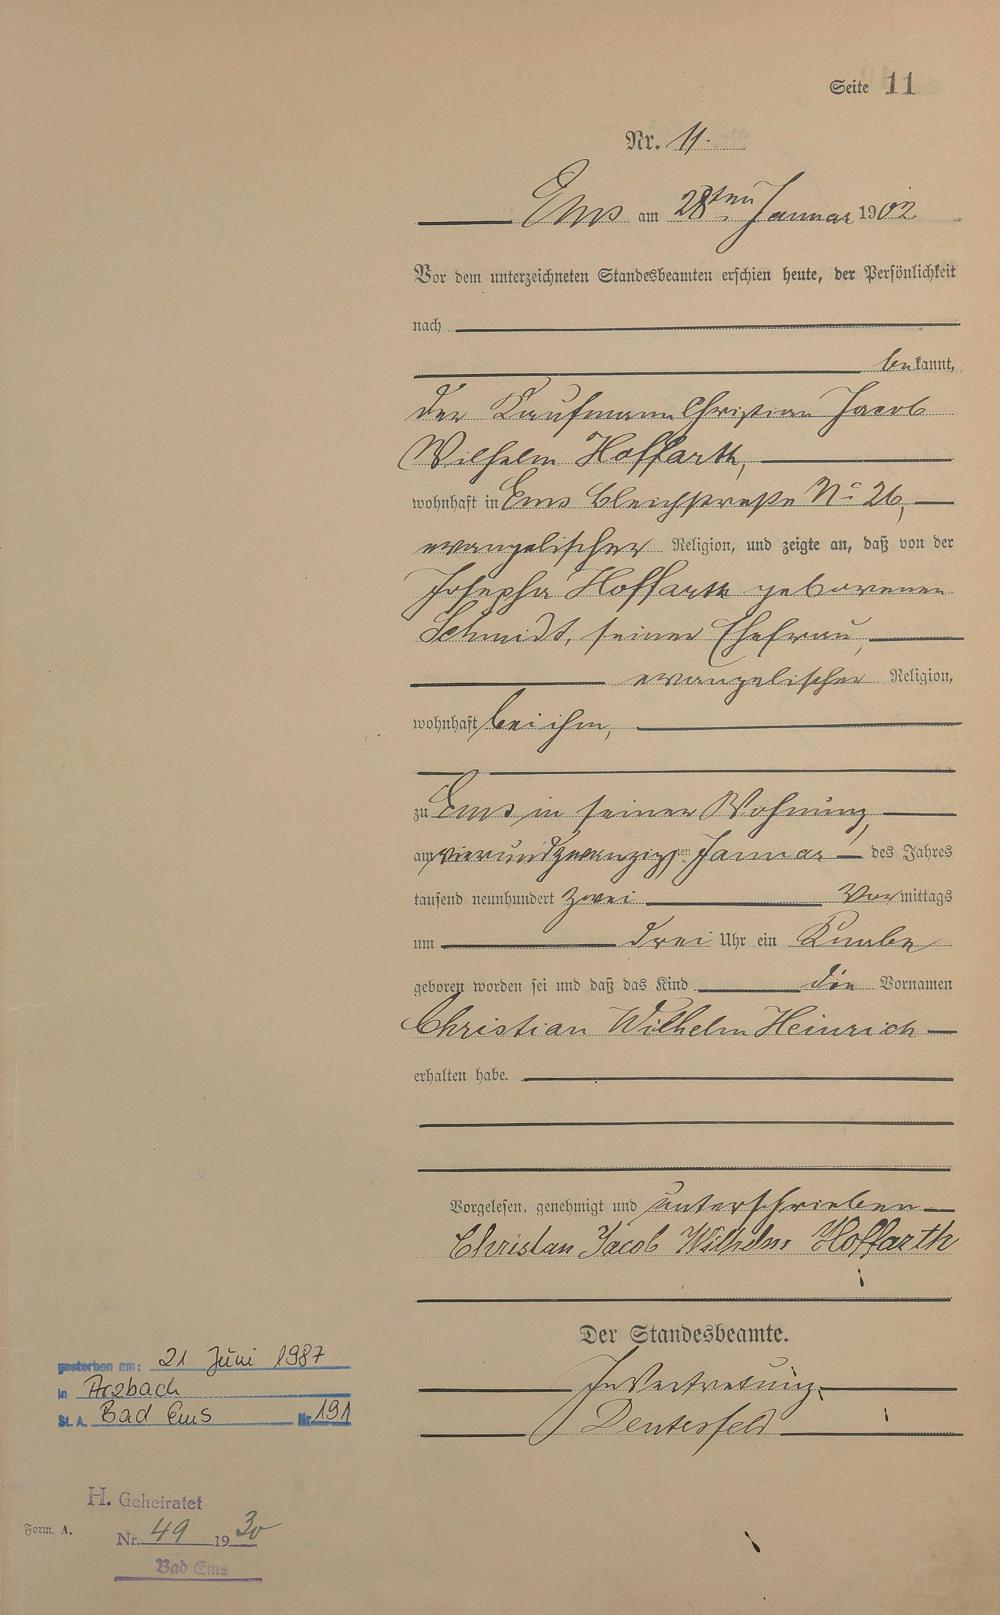 Seite 11
Nr. 11.
Ems am 28ten Januar 1902
Vor dem unterzeichneten Standesbeamten erschien heute, der Persönlichkeit
nach
bekannt,
der Kaufmann Christian Jacob
Wilhelm Hoffarth,
wohnhaft in Ems Bleichstraße No 26,
evangelischer Religion, und zeigte an, daß von der
Josepha Hoffarth geborenen
Schmidt, seiner Ehefrau,
evangelischer Religion,
wohnhaft bei ihm,
zu Ems in seiner Wohnung
am vierundzwanzigsten Januar des Jahres
tausend neunhundert zwei Vormittags
um drei Uhr ein Knabe
geboren worden sei und daß das Kind die Vornamen
Christian Wilhelm Heinrich
erhalten habe.
Vorgelesen, genehmigt und unterschrieben
Christian Jacob Wilhelm Hoffarth
Der Standesbeamte.
In Vertretung.
gestorben am: 21 Juni 1987
in Arzbach
St. A. Bad Ems Nr. 191
H. Geheiratet
Nr. 49 1930
Bad Ems
Form. A.